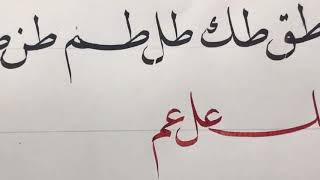 طق طك طل طم طن
عل عم